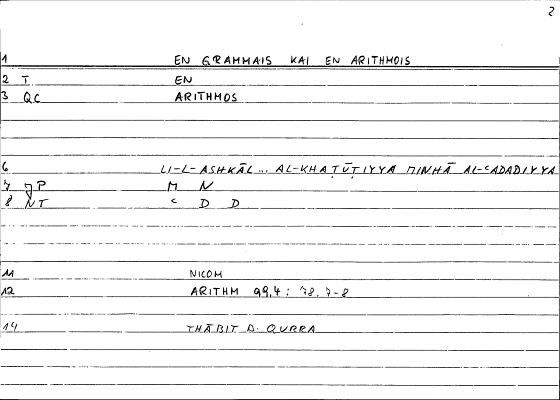 2
1 EN GRAMMAIS KAI EN ARITHMOIS
2 T EN
3 QC ARITHMOS
6 LI-L-ASHKĀL... AL-KHAṬŪṬIYYA MINHĀ AL-ʿADADIYYA
7 JP M N
8 NT ʿ D D
11 NICOM
12 ARITHM 99,4; 78,7-8
14 THĀBIT B. QURRA